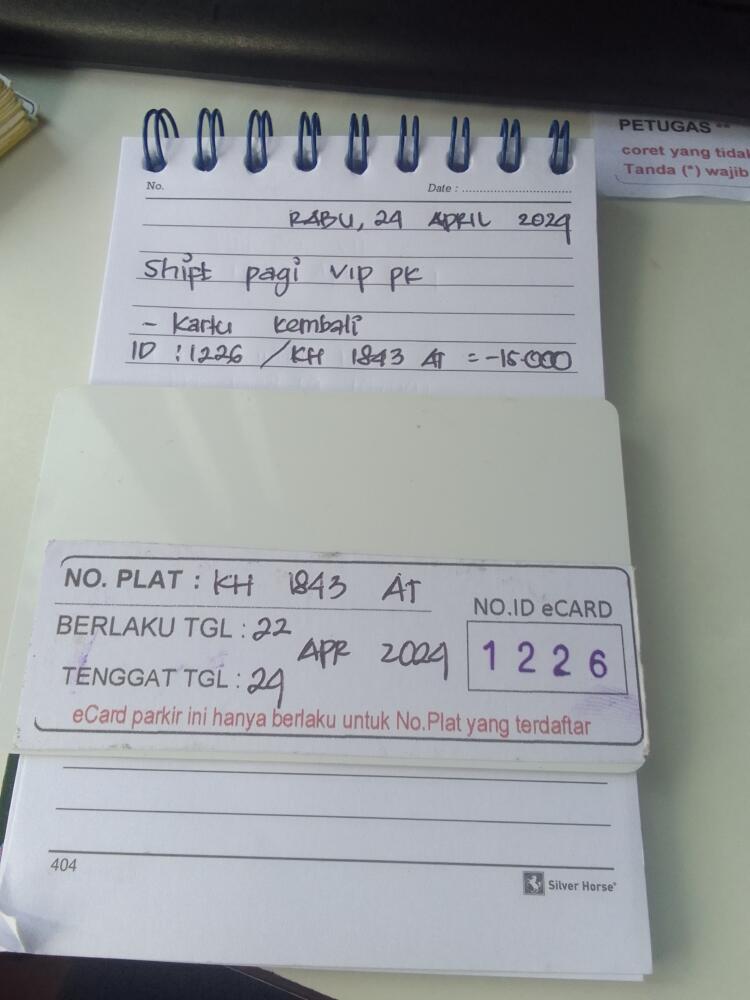 PETUGAS **
coret yang tidak
Tanda (*) wajib
No.
Date :
RABU, 24 APRIL 2024
Shift pagi VIP PK
- Kartu kembali
ID : 1226 / KH 1843 AT = -15.000
NO. PLAT : KH 1843 AT
BERLAKU TGL : 22
APR 2024
TENGGAT TGL : 24
NO.ID eCARD
1226
eCard parkir ini hanya berlaku untuk No.Plat yang terdaftar
404
Silver Horse